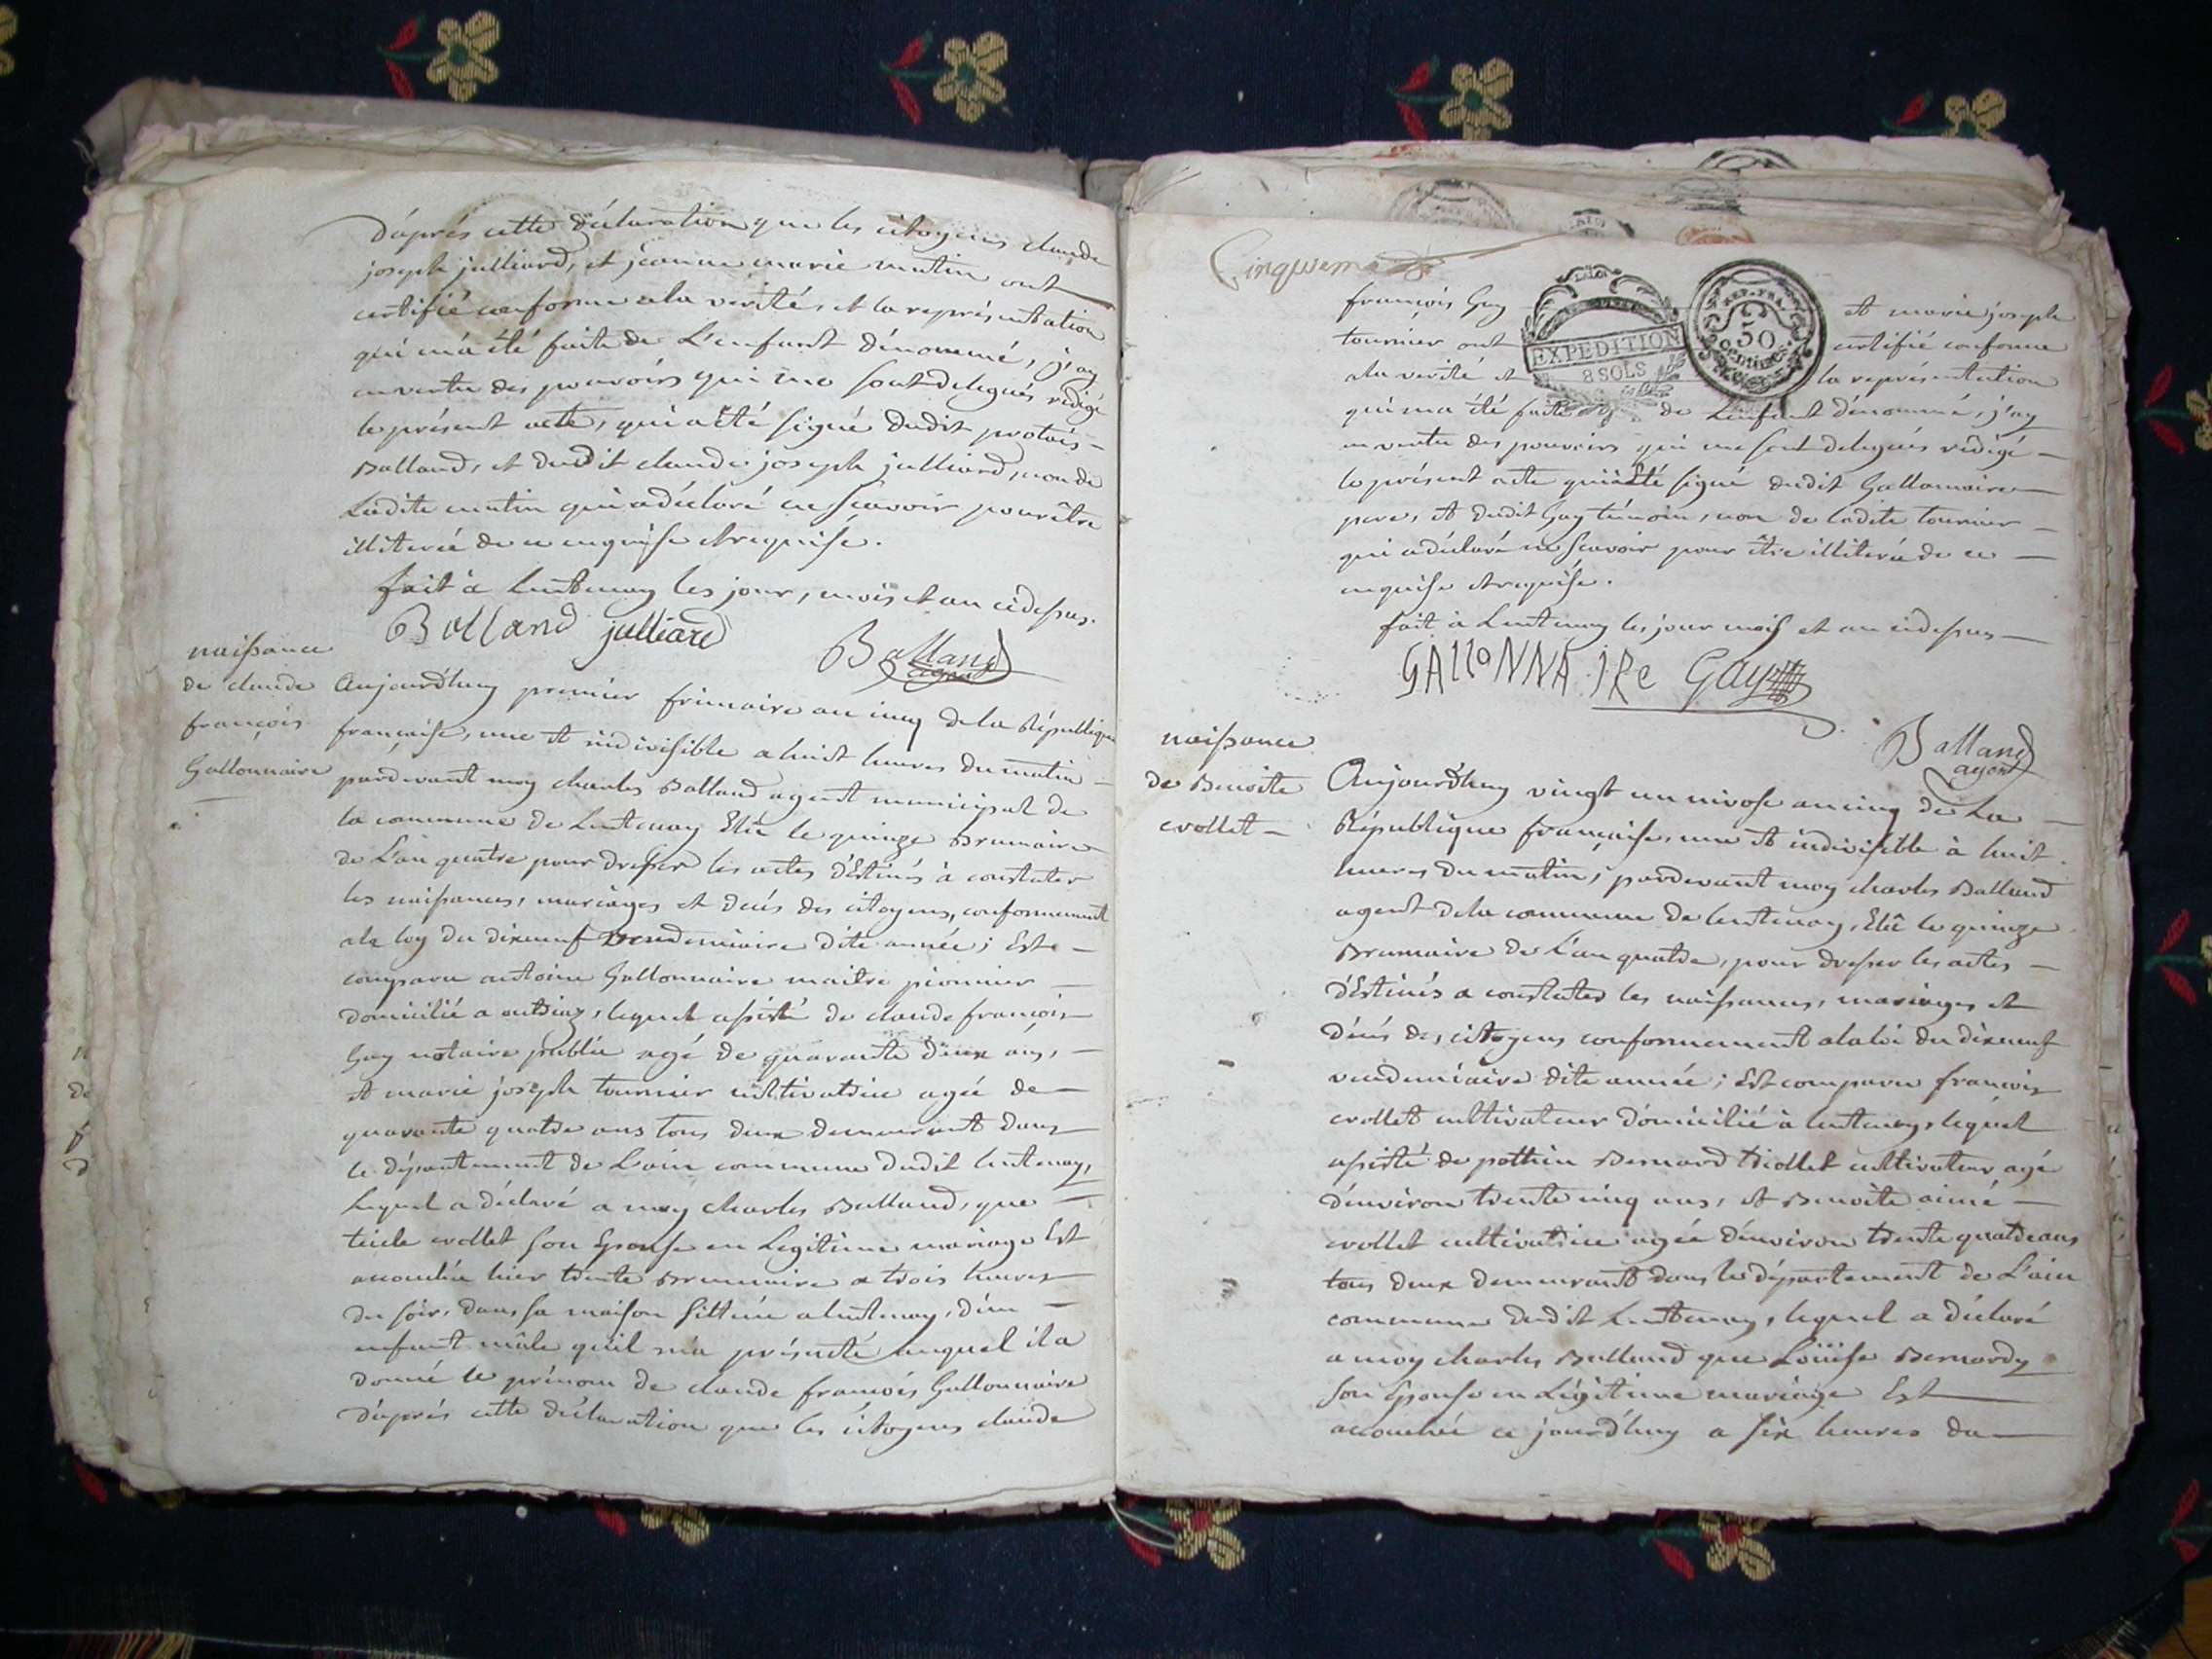 d'après cette déclaration que les citoyens claude
joseph julliard, et jeanne marie mutin ont
certifié conforme ala verité, et la représentation
qui ma été faite de L'enfant dénommé, j'ay
en vertu des pouvoirs qui me sont delegués rédigé
le présent acte, qui a été signé dudit protais
Balland, et dudit claude joseph julliard, non de
Ladite mutin qui a déclaré ne sçavoir pour être
illiterée de ce enquise et requise.
fait à Lentenay les jour, mois et an cidessus.
Balland julliard
Balland
agent
naissance
de claude
françois
Gallonnaire
Aujourd'huy premier frimaire an cinq de la République
française, une et indivisible a huit heures du matin
pardevant moy charles Balland agent municipal de
la commune de Lentenay Elû le quinze Brumaire
de L'an quatre pour dresser les actes d'Estinés à constater
les naissances, mariages et decés des citoyens, conformement
ala loy du dixneuf vendemiaire dite année; Est
comparu antoine Gallonnaire maitre pionnier
domicilié a outriaz, lequel assisté de claude françois
Guy notaire public agé de quarante deux ans,
et marie joseph tournier cultivatrice agée de
quarante quatre ans tous deux demeurant dans
le département de L'ain commune dudit lentenay,
Lequel a déclaré a moy charles Balland, que
crollet son Epouse en Legitime mariage Est
accouchée hier trente Brumaire a trois heures
du soir, dans sa maison sittuée a lentenay, d'un
enfant mâle qu'il m'a présenté auquel il a
donné le prénom de claude françois Gallonnaire
d'après cette déclaration que les citoyens claude
Cinquieme
françois Guy et marie joseph
tournier ont certifié conforme
ala verité et la représentation
qui ma été faite de L'enfant dénommé, j'ay
en vertu des pouvoirs qui me sont delegués rédigé
le présent acte qui a été signé dudit Gallonnaire
pere, et dudit Guy témoin, non de ladite tournier
qui a déclaré ne scavoir pour être illiterée de ce
enquise et requise.
fait à Lentenay les jour mois et an cidessus
EXPEDITION
8 SOLS
REP. FRA.
50
Centimes
GALLONNAIRe Guy
Balland
agent
naissance
de Benoite
crollet
Aujourd'huy vingt un nivose an cinq de La
République française, une et indivisible à huit
heures du matin, pardevant moy charles Balland
agent dela commune de lentenay, Elû le quinze
Brumaire de L'an quatre, pour dresser les actes
d'Estinés a constater les naissances, mariages et
décés des citoyens conformement ala loi du dixneuf
vendemiaire dite année; Est comparu françois
crollet cultivateur domicilié à lentenay, lequel
assisté de pothin Bernard crollet cultivateur agé
d'environ trente cinq ans, et Benoite aimé
crollet cultivatrice agée d'environ trente quatre ans
tous deux demeurant dans le département de L'ain
commune dudit Lentenay, lequel a déclaré
a moy charles Balland que Loüise Bernardy
son Epouse en Légitime mariage Est
accouchée ce jourd'huy a six heures du